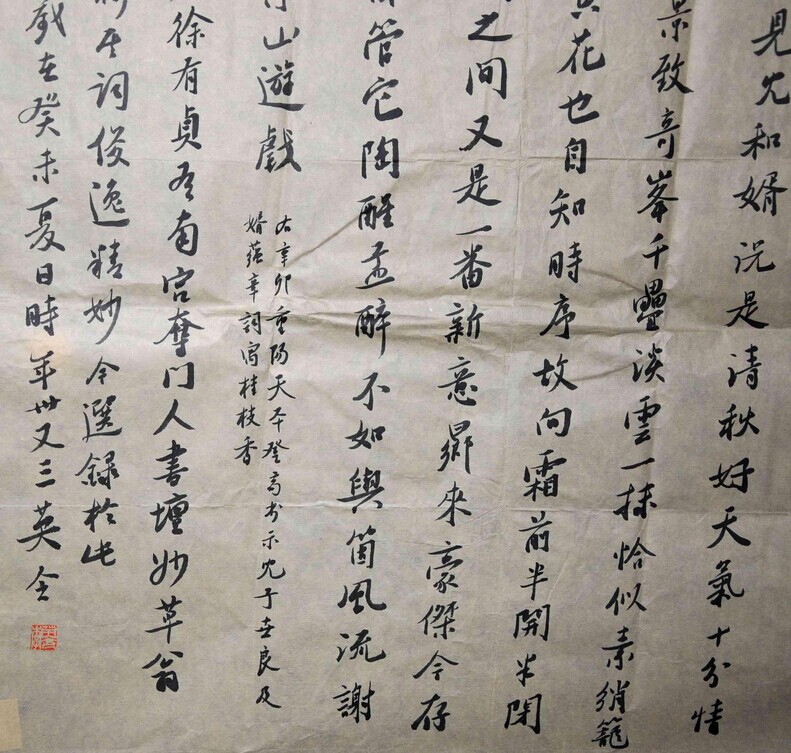 見兒和婿況是清秋好天氣十分情
景致奇峯千疊淡雲一抹恰似素綃籠
花也自知時序故向霜前半開半閉
之間又是一番新意嚮來豪傑今存
管它陶醒孟醉不如與箇風流謝
山遊戲
右辛卯重陽天平登高書示兒于世良及
婿蔣章詞寓桂枝香
徐有貞吾南宮奪門人書壇妙草翁
其詞俊逸精妙今選錄於此
戲在癸未夏日時年卅又三英全